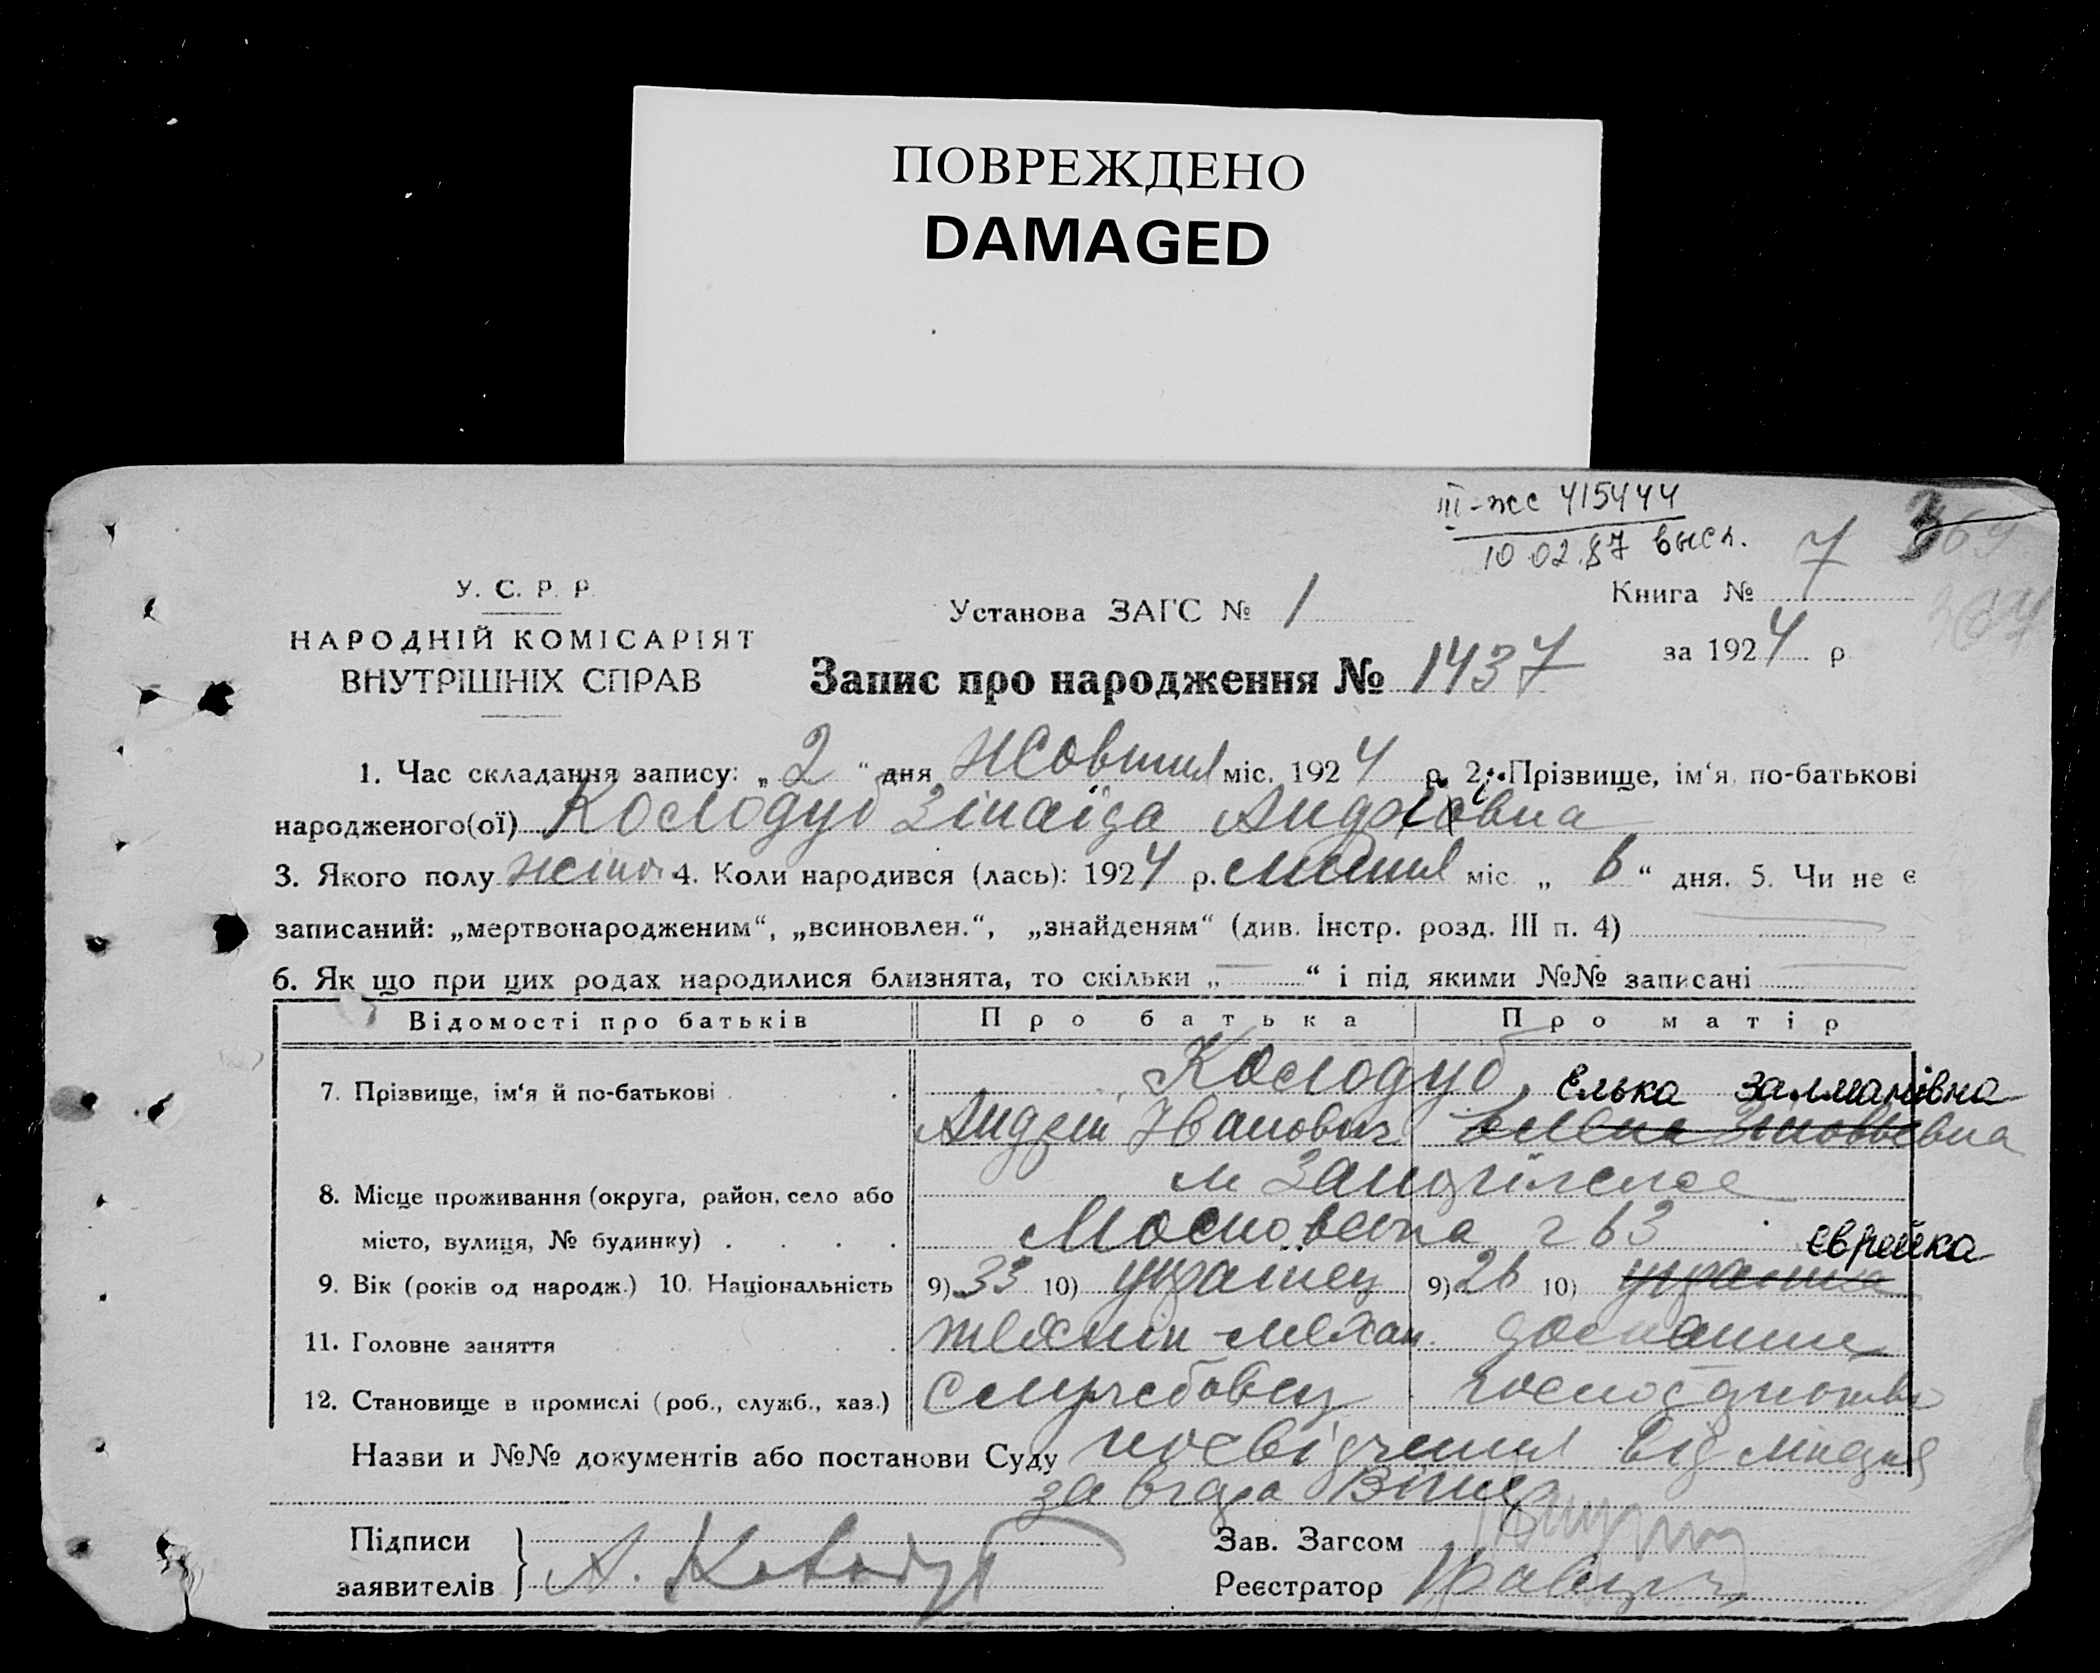 ПОВРЕЖДЕНО
DAMAGED
III-жс 415444
10.02.87 высл.
У. С. Р. Р.
НАРОДНІЙ КОМІСАРІЯТ
ВНУТРІШНІХ СПРАВ
Установа ЗАГС № 1
Книга № 7
за 1924 р
Запис про народження № 1437
1. Час складання запису: „2“ дня Жовтня міс. 1924 р. 2. Прізвище, ім‘я, по-батькові
народженого(ої) Колодуб Зінаїда Андріївна
3. Якого полу жіноч. 4. Коли народився (лась): 1924 р. міс. „ “ дня. 5. Чи не є
записаний: „мертвонародженим“, „всиновлен.“, „знайденям“ (див. Інстр. розд. III п. 4)
6. Як що при цих родах народилися близнята, то скільки „ “ і під якими №№ записані
Відомості про батьків Про батька Про матір
7. Прізвище, ім‘я й по-батькові Колодуб
Елька Залманівна
Андрій Іванович Елена Зіновьевна
8. Місце проживання (округа, район, село або
м Запоріжжє
місто, вулиця, № будинку) Московська
єврейка
9. Вік (років од народж.) 10. Національність 9) 33 10) украінец 9) 26 10) украинка
11. Головне заняття техник-механ. домашне
12. Становище в промислі (роб., служб., хаз.) Службовец господарство
Назви и №№ документів або постанови Суду посвідчення від
Підписи
заявителів } А. Колодуб
Зав. Загсом
Реєстратор